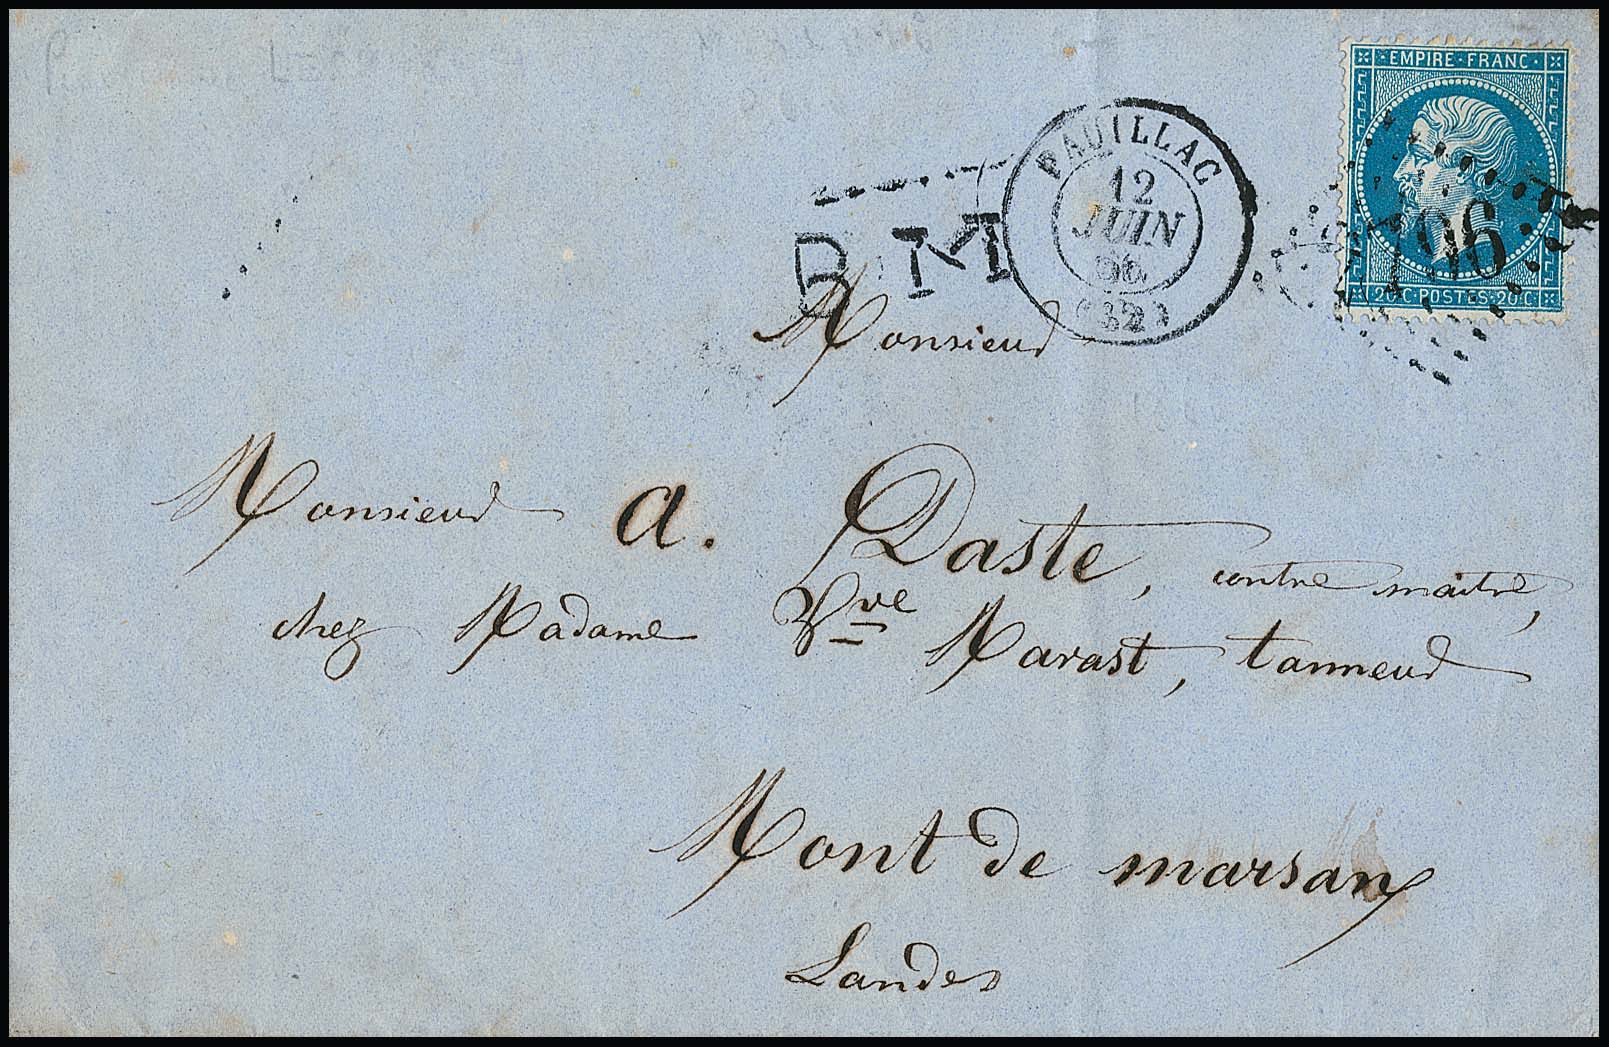 EMPIRE·FRANC
PAUILLAC
12
JUIN
(32)
B.M
20·C·POSTES·20·C
Monsieur
Monsieur A. Daste, contre maitre,
chez Madame Vve Marast, tanneur
Mont de marsan
Landes